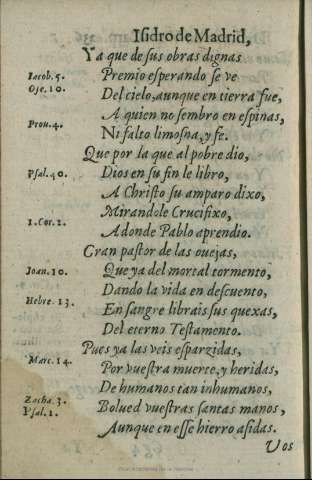 Isidro de Madrid,
Ya que de sus obras dignas
Iacob. 5. Premio esperando se ve
Ose. 10. Del cielo, aunque en tierra fue,
A quien no sembro en espinas,
Prou. 4. Ni falto limosna, y fe.
Que por la que al pobre dio,
Psal. 40. Dios en su fin le libro,
A Christo su amparo dixo,
Mirandole Crucifixo,
1. Cor. 2. A donde Pablo aprendio.
Gran pastor de las ouejas,
Ioan. 10. Que ya del mortal tormento,
Dando la vida en descuento,
Hebre. 13. En sangre librais sus quexas,
Del eterno Testamento.
Pues ya las veis esparzidas,
Marc. 14. Por vuestra muerte, y heridas,
De humanos tan inhumanos,
Zacha. 3. Bolued vuestras santas manos,
Psal. 1. Aunque en esse hierro asidas.
Vos